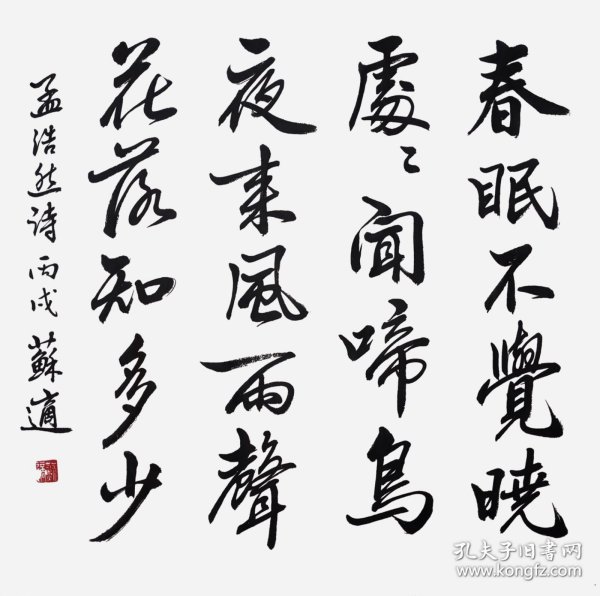 春眠不覺曉
處〻聞啼鳥
夜来風雨聲
花落知多少
孟浩然詩丙戌蘇適
孔夫子旧书网
www.kongfz.com